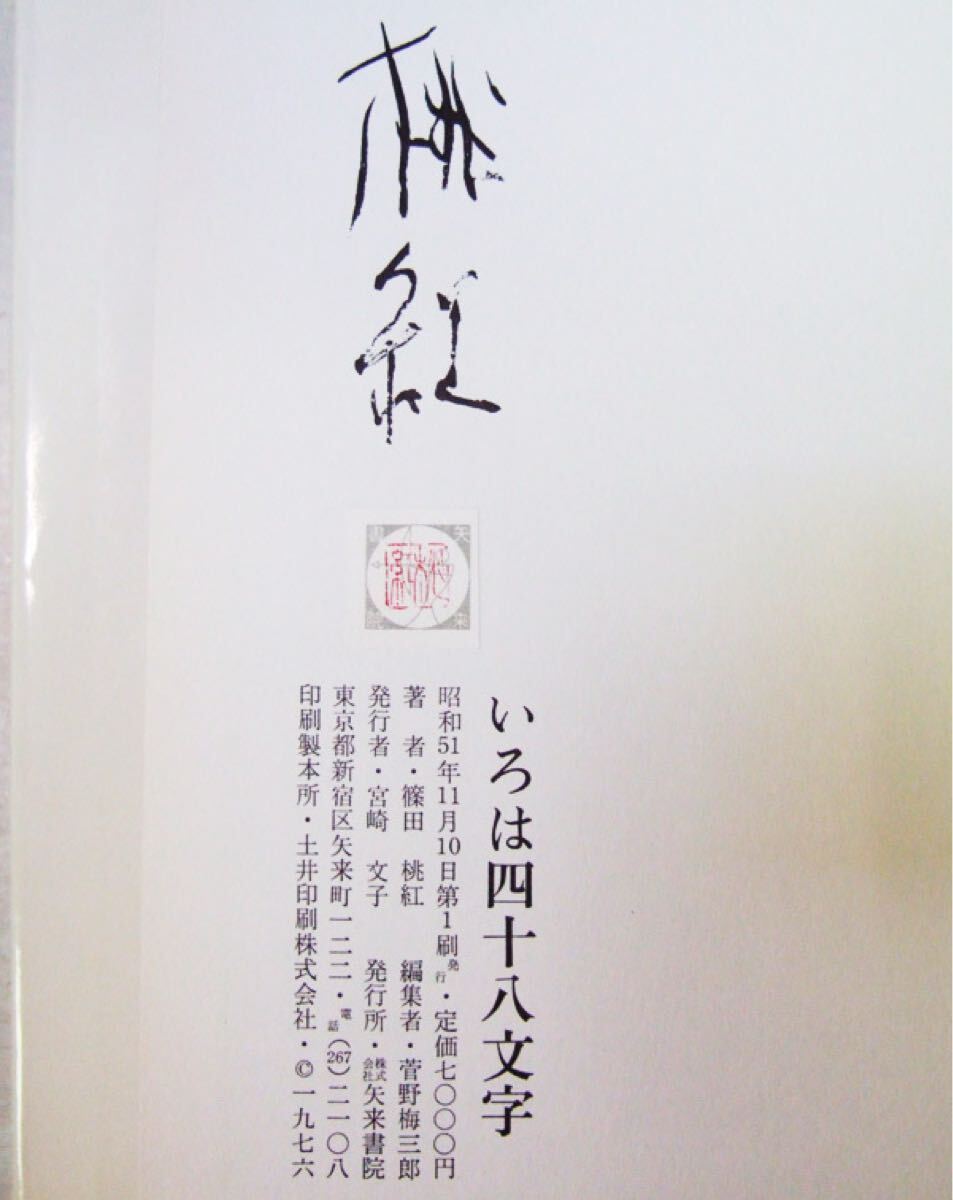 桃紅
矢来書院
いろは四十八文字
昭和51年11月10日第1刷発行・定価七〇〇〇円
著　者・篠田　桃紅　　編集者・菅野梅三郎
発行者・宮崎　文子　　発行所・株式会社矢来書院
東京都新宿区矢来町一二二・電話(267)二一〇八
印刷製本所・土井印刷株式会社・©一九七六